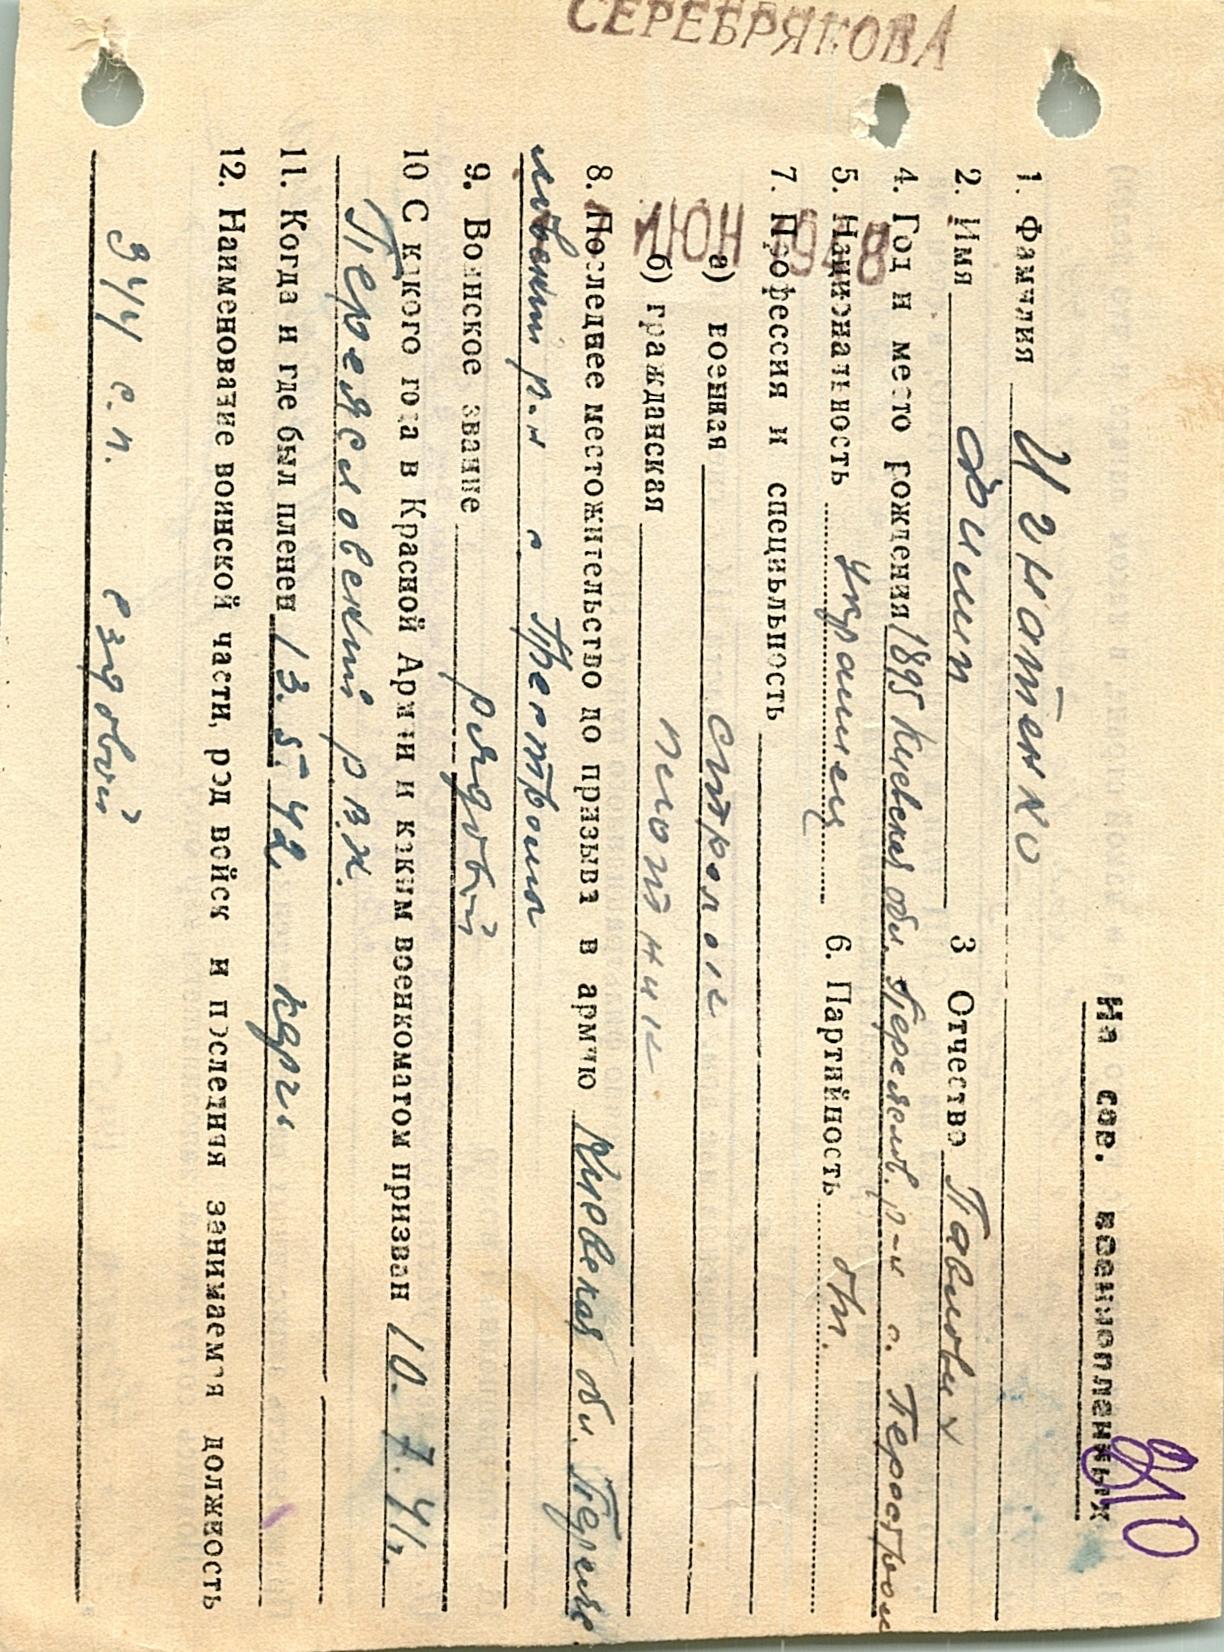 СЕРЕБРЯКОВА
На сов. военнопленных
210
1. Фамилия Игнатенко
2. Имя Филип 3 Отчество Павлович
4. Год и место рождения 1895 Киевская обл. Переясл. р-н с.
5. Национальность украинец 6. Партийность б/п.
7. Профессия и специальность
а) военная
б) гражданская плотник
8. Последнее местожительство до призыва в армию Киевская обл. Переяс
ловский р-н с.
9. Воинское звание рядовой
10 С какого года в Красной Армии и каким военкоматом призван 10. 7. 41г.
Переясловский рвк.
11. Когда и где был пленен 13. 5. 42. керчь
12. Наименование воинской части, род войск и последняя занимаемая должность
944 с.п. ездовой
ИЮН 1948